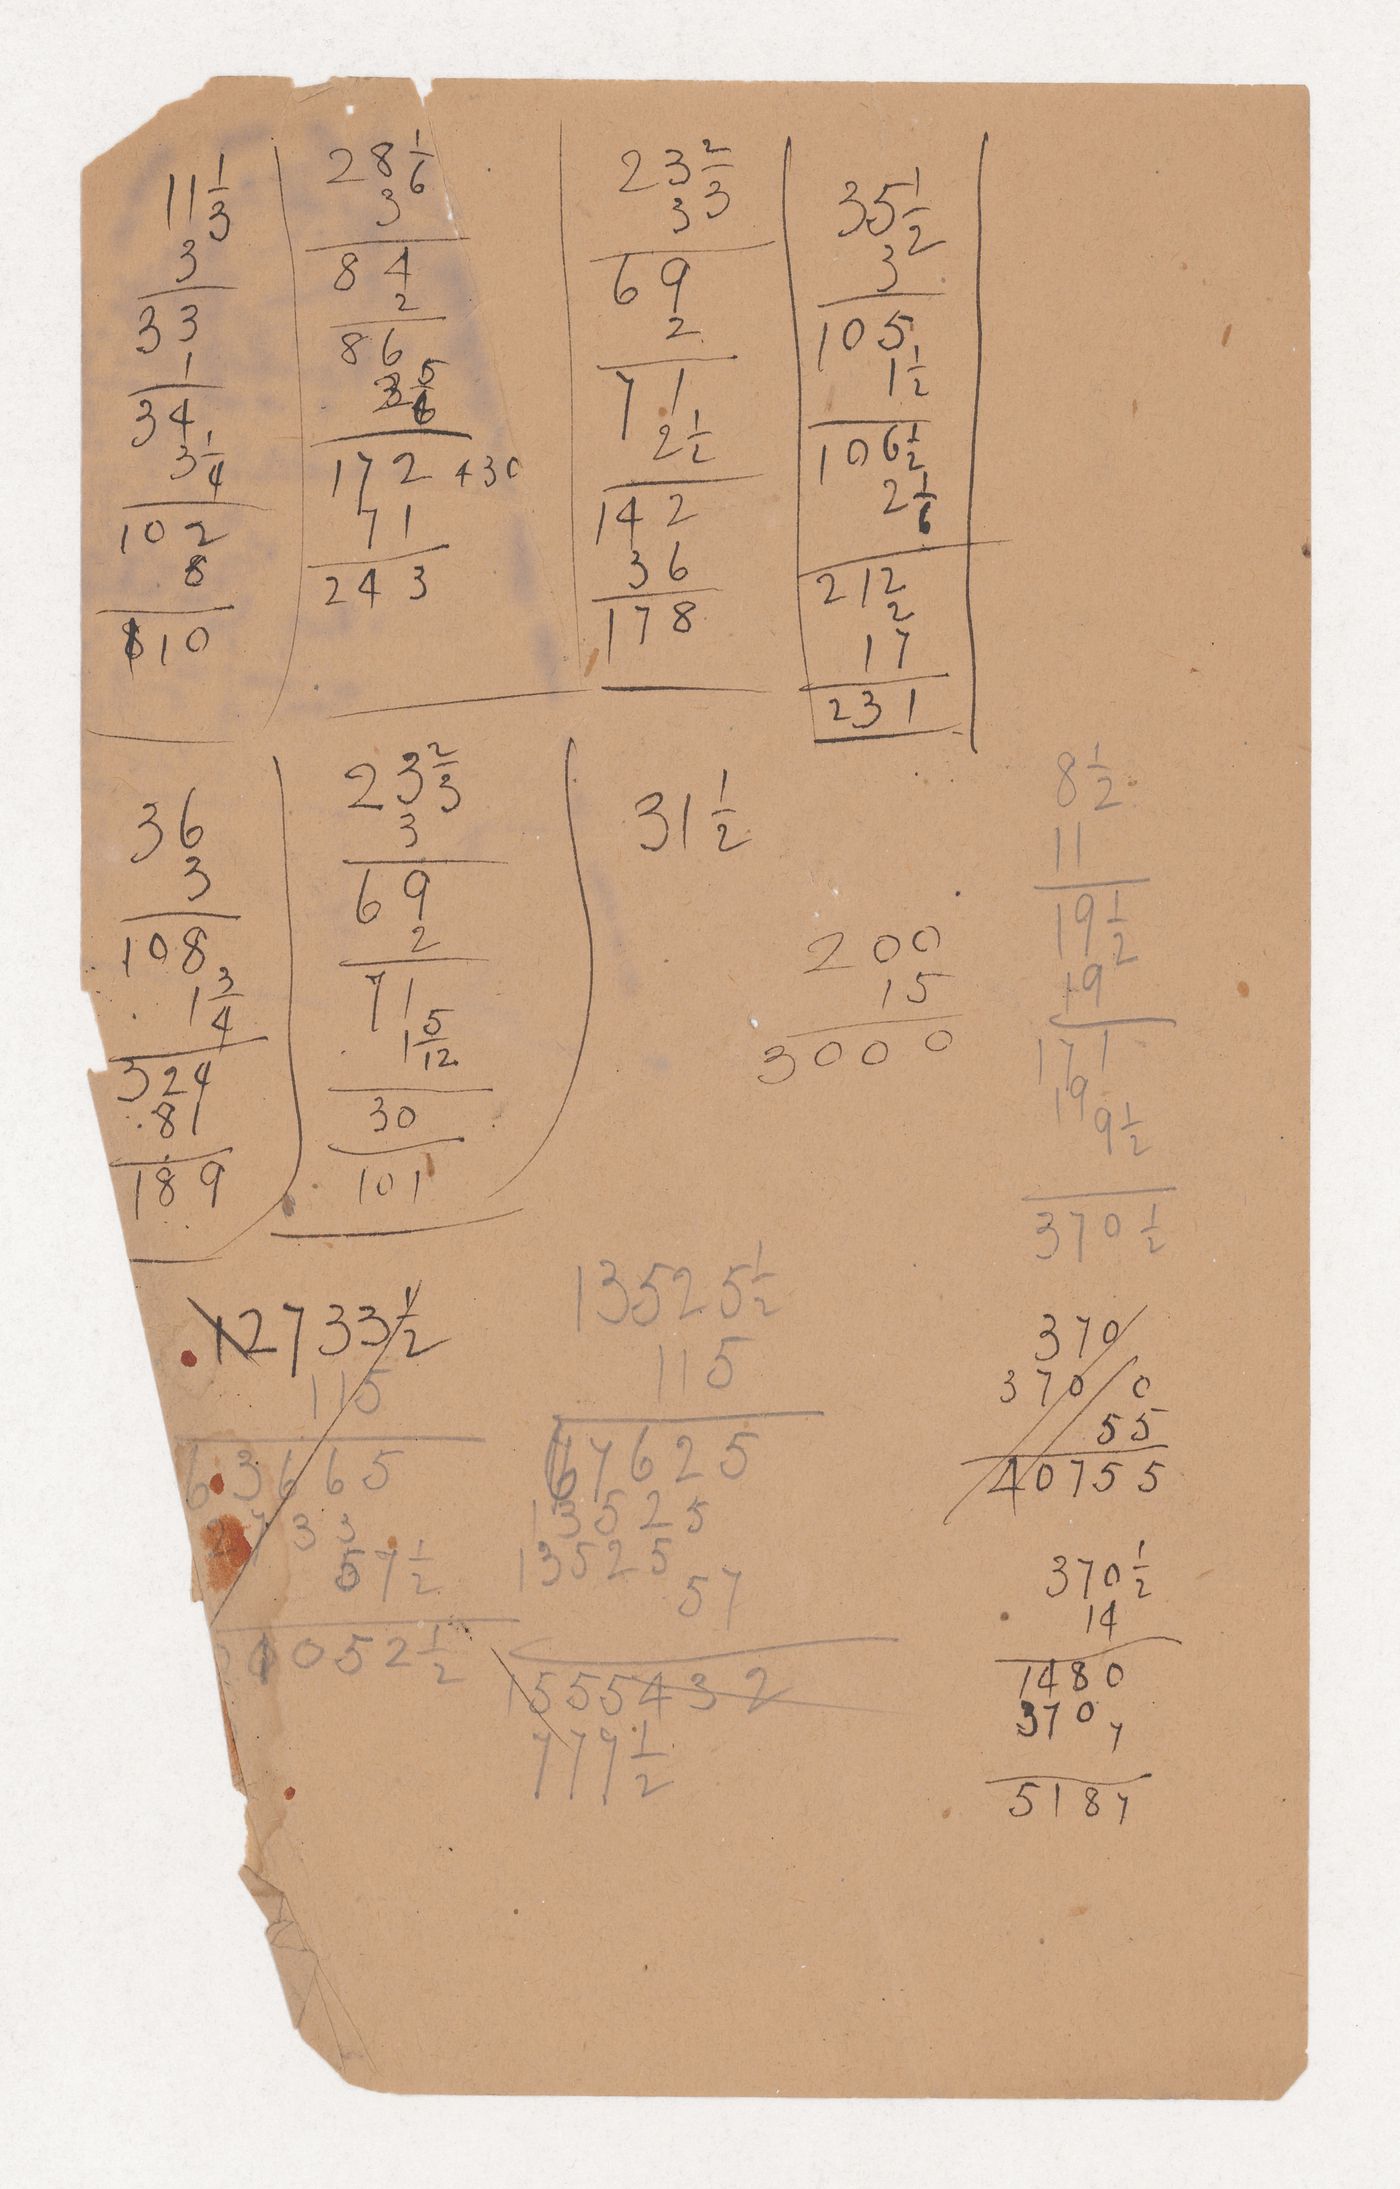 11 1/3
3
33
1
34
3 1/4
102
8
110
28 1/6
3
84
2
86
5/6
172 +30
71
243
23 2/3
3
69
2
71
2 1/2
142
36
178
35 1/2
3
105
1 1/2
106 1/2
2 1/6
212
2
17
231
36
3
108
1 3/4
324
81
189
23 2/3
3
69
2
71
1 5/12
30
101
31 1/2
200
15
3000
8 1/2
11
19 1/2
19
171
19
9 1/2
370 1/2
12733 1/2
115
63665
2733
57 1/2
052 1/2
13525 1/2
115
67625
13525
13525
57
1555432
779 1/2
370
370 0
55
40755
370 1/2
14
1480
370
7
5187